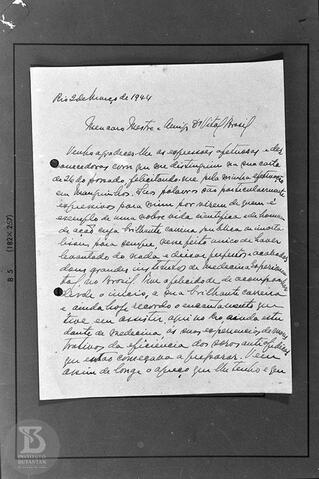 Rio 2 de Março de 1944
Meu caro Mestre e Amigo Dr Vital Brasil
Venho agradecer-lhe as expressões afetuosas e
vencedoras com que me distinguiu na sua carta
de 26 do passado, felicitando-me pela minha
em Manguinhos. Suas palavras são particularmente
expressivas para mim por virem de quem é
exemplo de uma nobre vida científica e de homem
de ação cuja brilhante carreira publica
para sempre, no feito unico de haver
levantado do nada e deixar perfeitos e acabados
dous grandes institutos de medicina experimen
tal no Brasil. Tive a felicidade de acompanhar
desde o inicio, a sua brilhante carreira
e ainda hoje recordo o encantamento que
tive em assistir, aqui no Rio ainda estu
dante de medicina, as suas experiencias demons
trativas da eficiencia dos soros antiofidicos
que então começava a preparar. Vem
assim de longe o apreço que lhe tenho e que
B 5 (182 X 257)
INSTITUTO
BUTANTAN